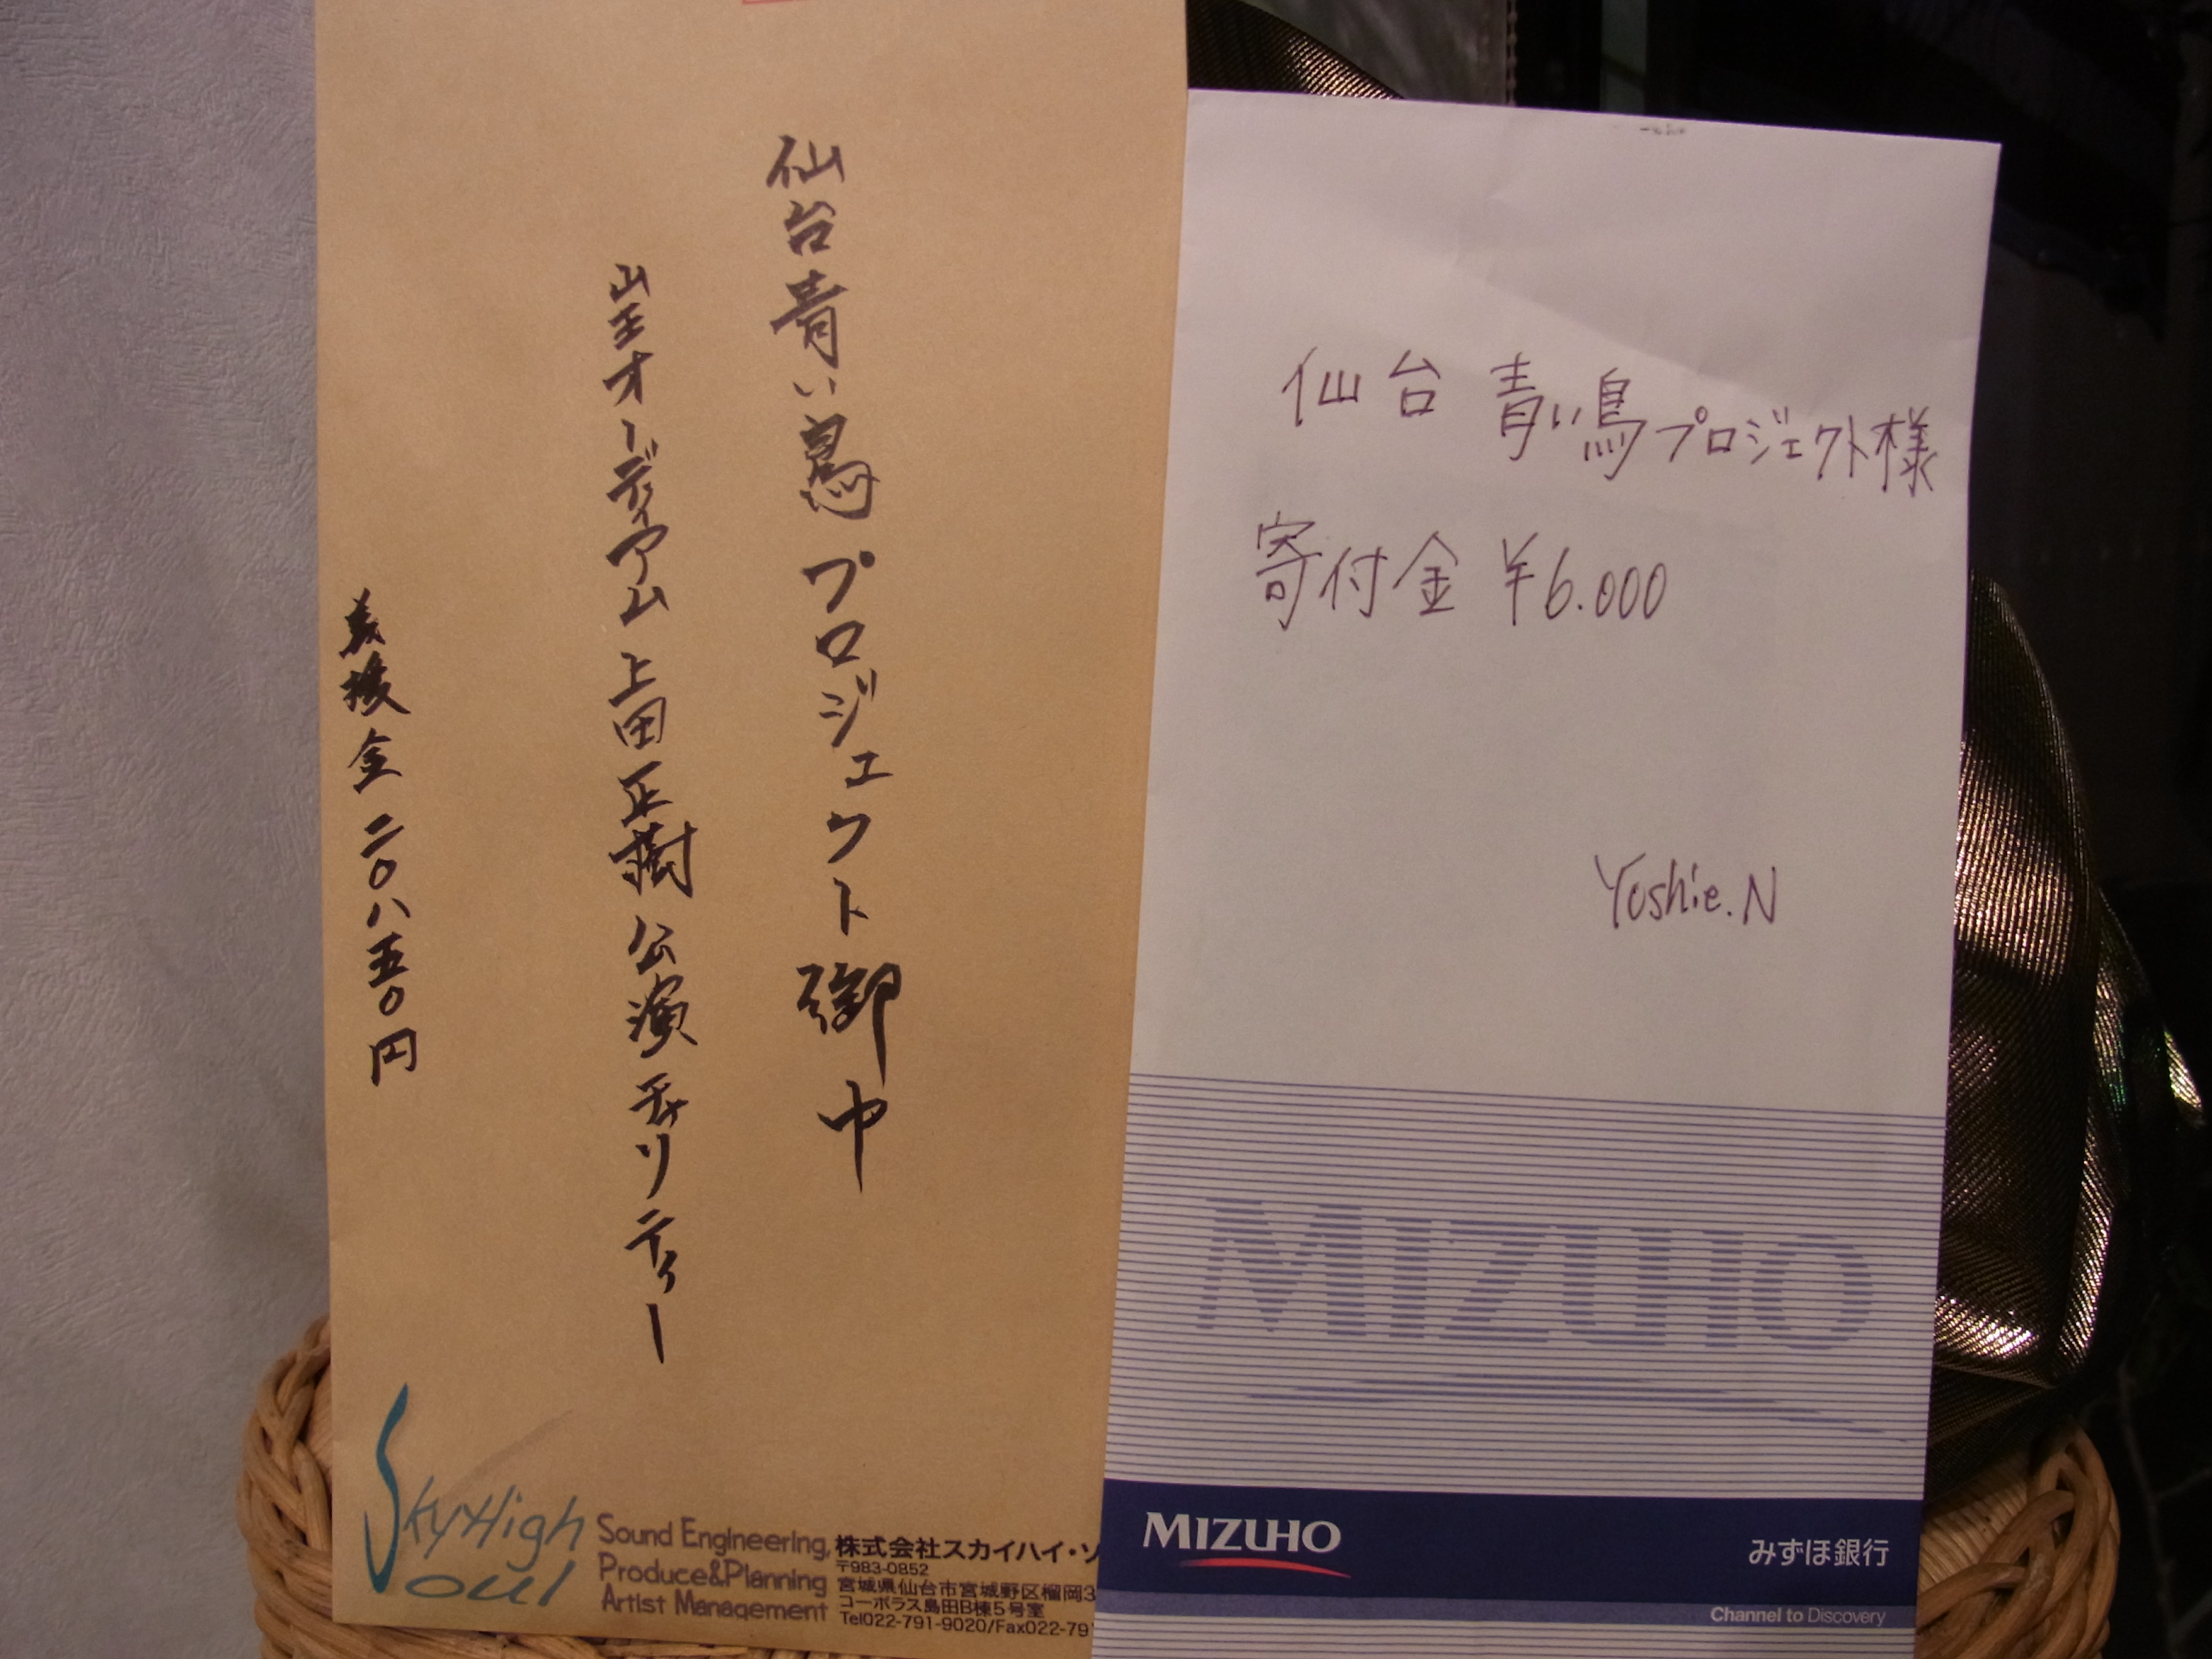 仙台青い鳥プロジェクト御中
山王オーディアム 上田正樹 公演 チャリティー
義援金 二〇八五〇円
SkyHigh Soul
Sound Engineering,
Produce&Planning
Artist Management
株式会社スカイハイ・ソ
〒983-0852
宮城県仙台市宮城野区榴岡3
コーポラス島田B棟5号室
Tel022-791-9020/Fax022-791
仙台 青い鳥プロジェクト様
寄付金 ¥6.000
Yoshie.N
MIZUHO
MIZUHO
みずほ銀行
Channel to Discovery